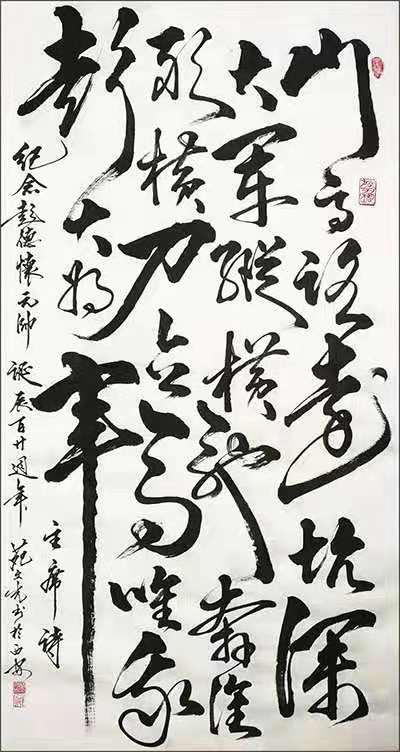 山高路遠坑深
大軍縱横馳奔誰
敢横刀立馬唯我
彭大將軍
主席詩
紀念彭德懷元帥誕辰百廿週年 書於西安